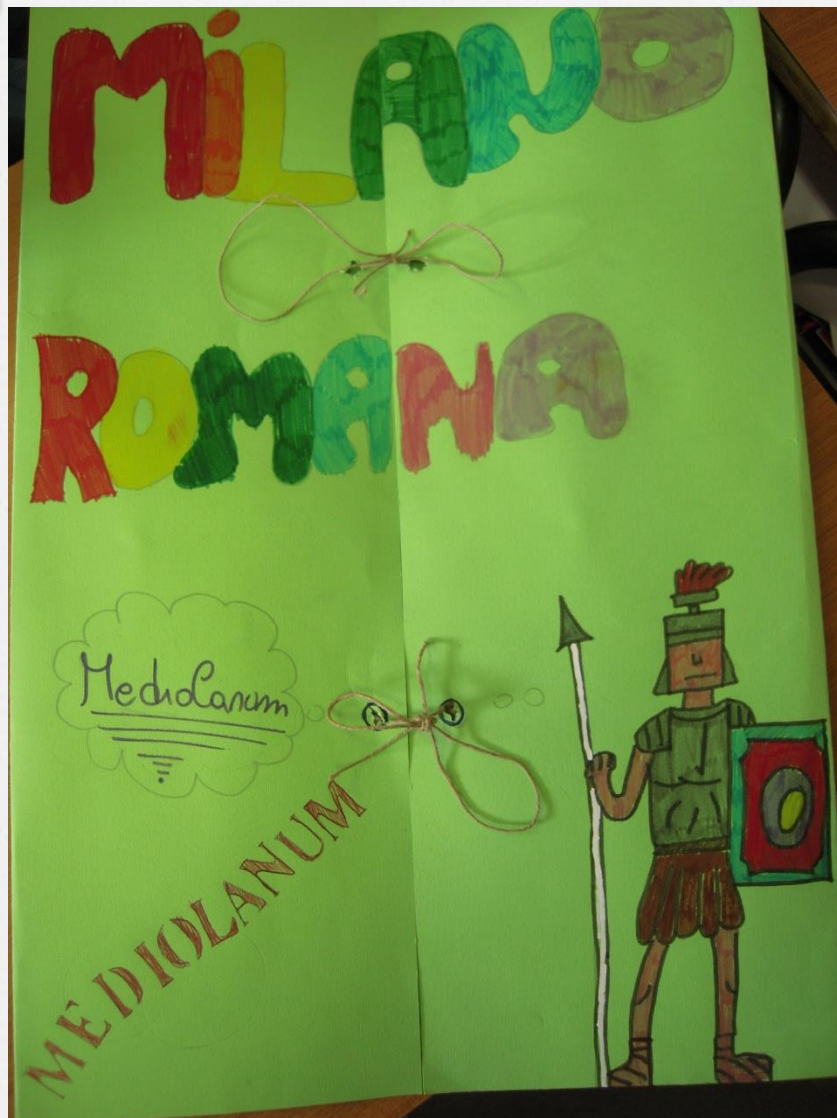 MiLANO
ROMANA
Mediolanum
MEDIOLANUM